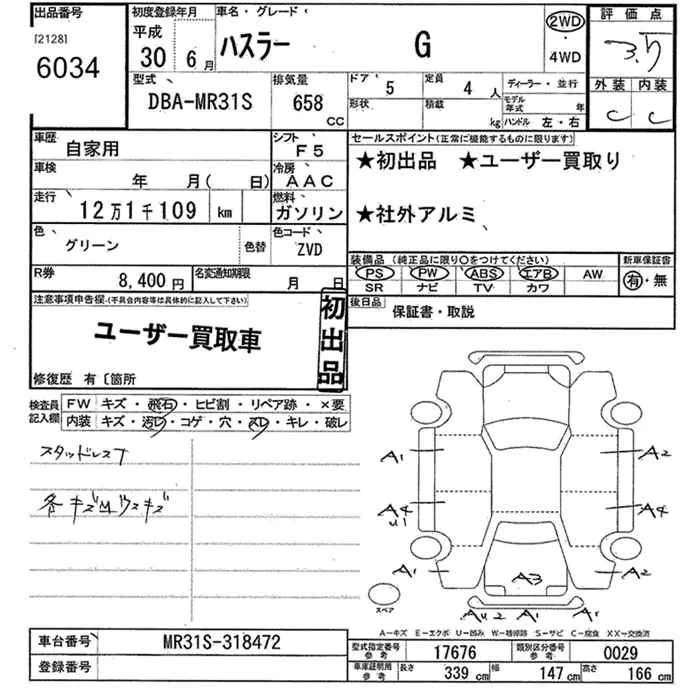 出品番号
[2128]
6034
初度登録年月
平成
30年 6月
車名・グレード
ハスラー G
2WD
・
4WD
評価点
3.5
外装 内装
C C
型式
DBA-MR31S
排気量
658 CC
ドア 5
定員 4人
形状
積載 kg
ディーラー・並行
モデル年式 年
ハンドル 左・右
車歴
自家用
シフト
F5
車検
年 月( 日)
冷房
AAC
走行
12万1千109 km
燃料
ガソリン
色
グリーン
色替
色コード
ZVD
R券
8,400円
名変通知期限
月 日
セールスポイント(正常に機能するものに限ります)
★初出品 ★ユーザー買取り
★社外アルミ
装備品 (純正品に限り○をつけてください)
PS PW ABS エアB AW
SR ナビ TV カワ
新車保証書
有・無
後日品
保証書・取説
注意事項申告欄-(不具合内容等は具体的に記入して下さい)
ユーザー買取車
初出品
修復歴 有〔箇所
検査員記入欄
FW キズ・飛石・ヒビ割・リペア跡・×要
内装 キズ・汚レ・コゲ・穴・スレ・キレ・破レ
スタッドレスT
各キズUウスキズ
A1 A2
A4 A4
U1
A1 A2
A3
AU2 A1 A1
スペア
A−キズ E−エクボ U−凹み W−補修跡 S−サビ C−腐食 XX−交換済
車台番号
MR31S-318472
登録番号
型式指定番号
参考
17676
類別区分番号
参考
0029
車庫証明用
参考
長さ 339 cm 幅 147 cm 高さ 166 cm